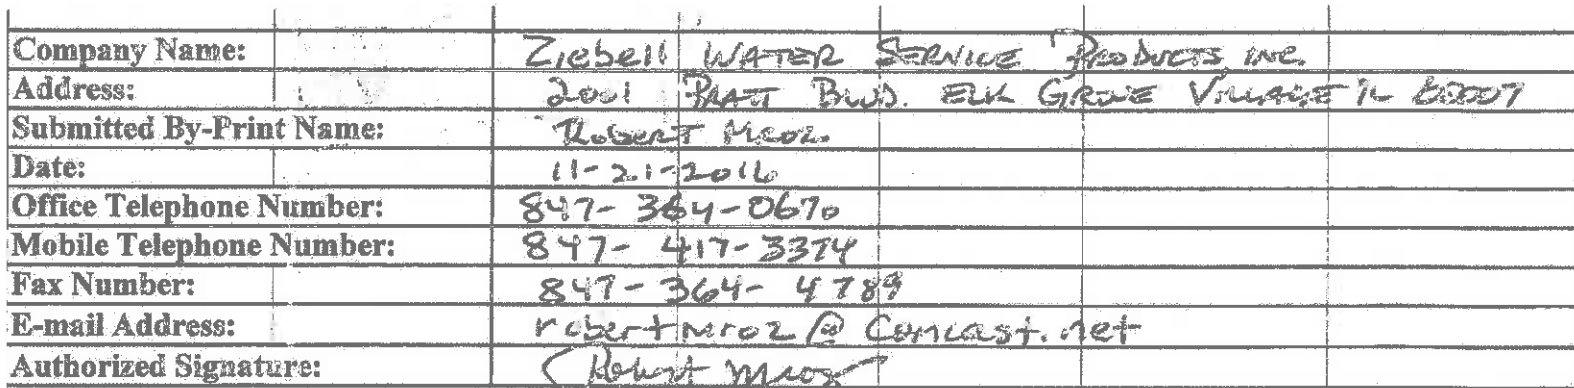 Company Name: Ziebell WATER SERVICE PRODUCTS INC.
Address: 2001 PRATT BLVD. ELK GROVE VILLAGE IL 60007
Submitted By-Print Name: Robert Mroz
Date: 11-21-2016
Office Telephone Number: 847-364-0670
Mobile Telephone Number: 847-417-3374
Fax Number: 847-364-4789
E-mail Address: robertmroz@Comcast.net
Authorized Signature: Robert Mroz